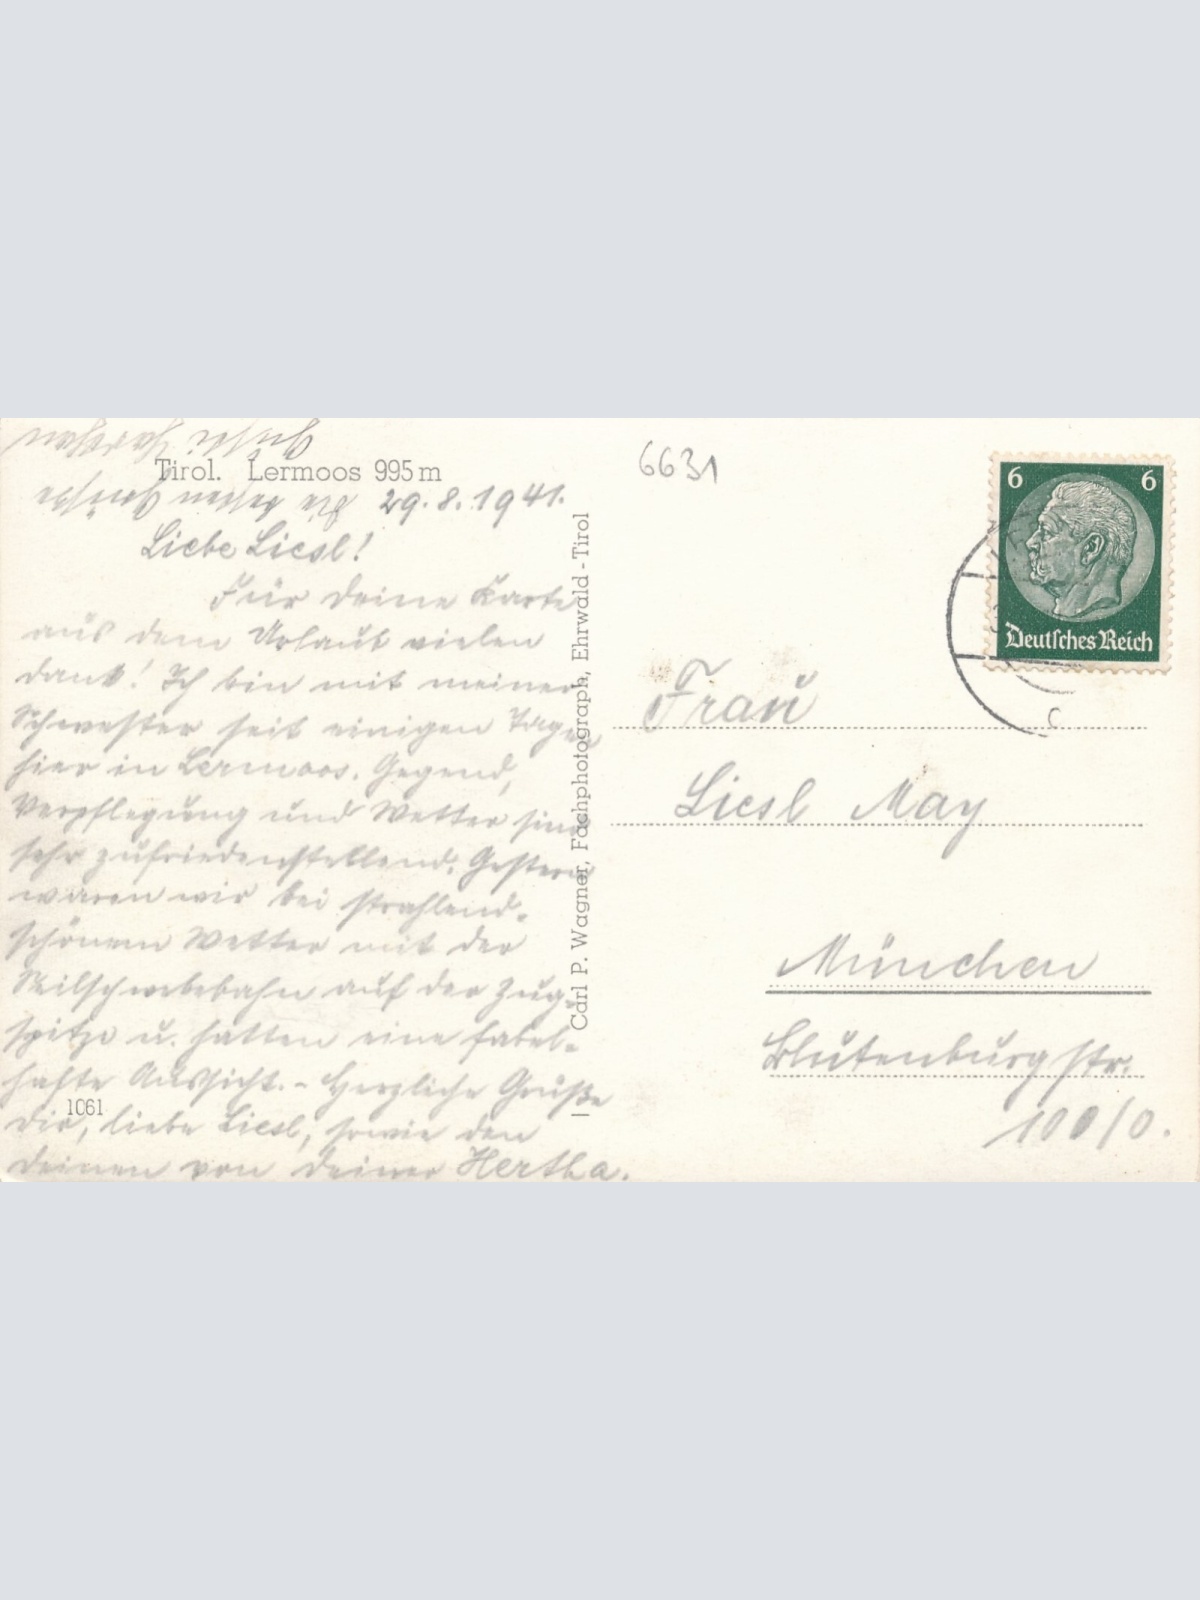 Tirol. Lermoos 995 m
29.8.1941.
Liebe Liesl!
Für Deine Karte
aus dem Urlaub vielen
Dank! Ich bin mit meiner
Schwester seit einigen Tagen
hier in Lermoos. Gegend,
Verpflegung und Wetter sind
sehr zufriedenstellend. Gestern
waren wir bei strahlend-
schönem Wetter mit der
Seilschwebebahn auf der Zug-
spitze u. hatten eine fabel-
hafte Aussicht. - Herzliche Grüße
Dir, liebe Liesl, sowie den
Deinen von Deiner Hertha.
1061
Carl P. Wagner, Fachphotograph, Ehrwald-Tirol
6631
6 6
Deutsches Reich
Frau
Liesl May
München
Blutenburgstr.
100/0.